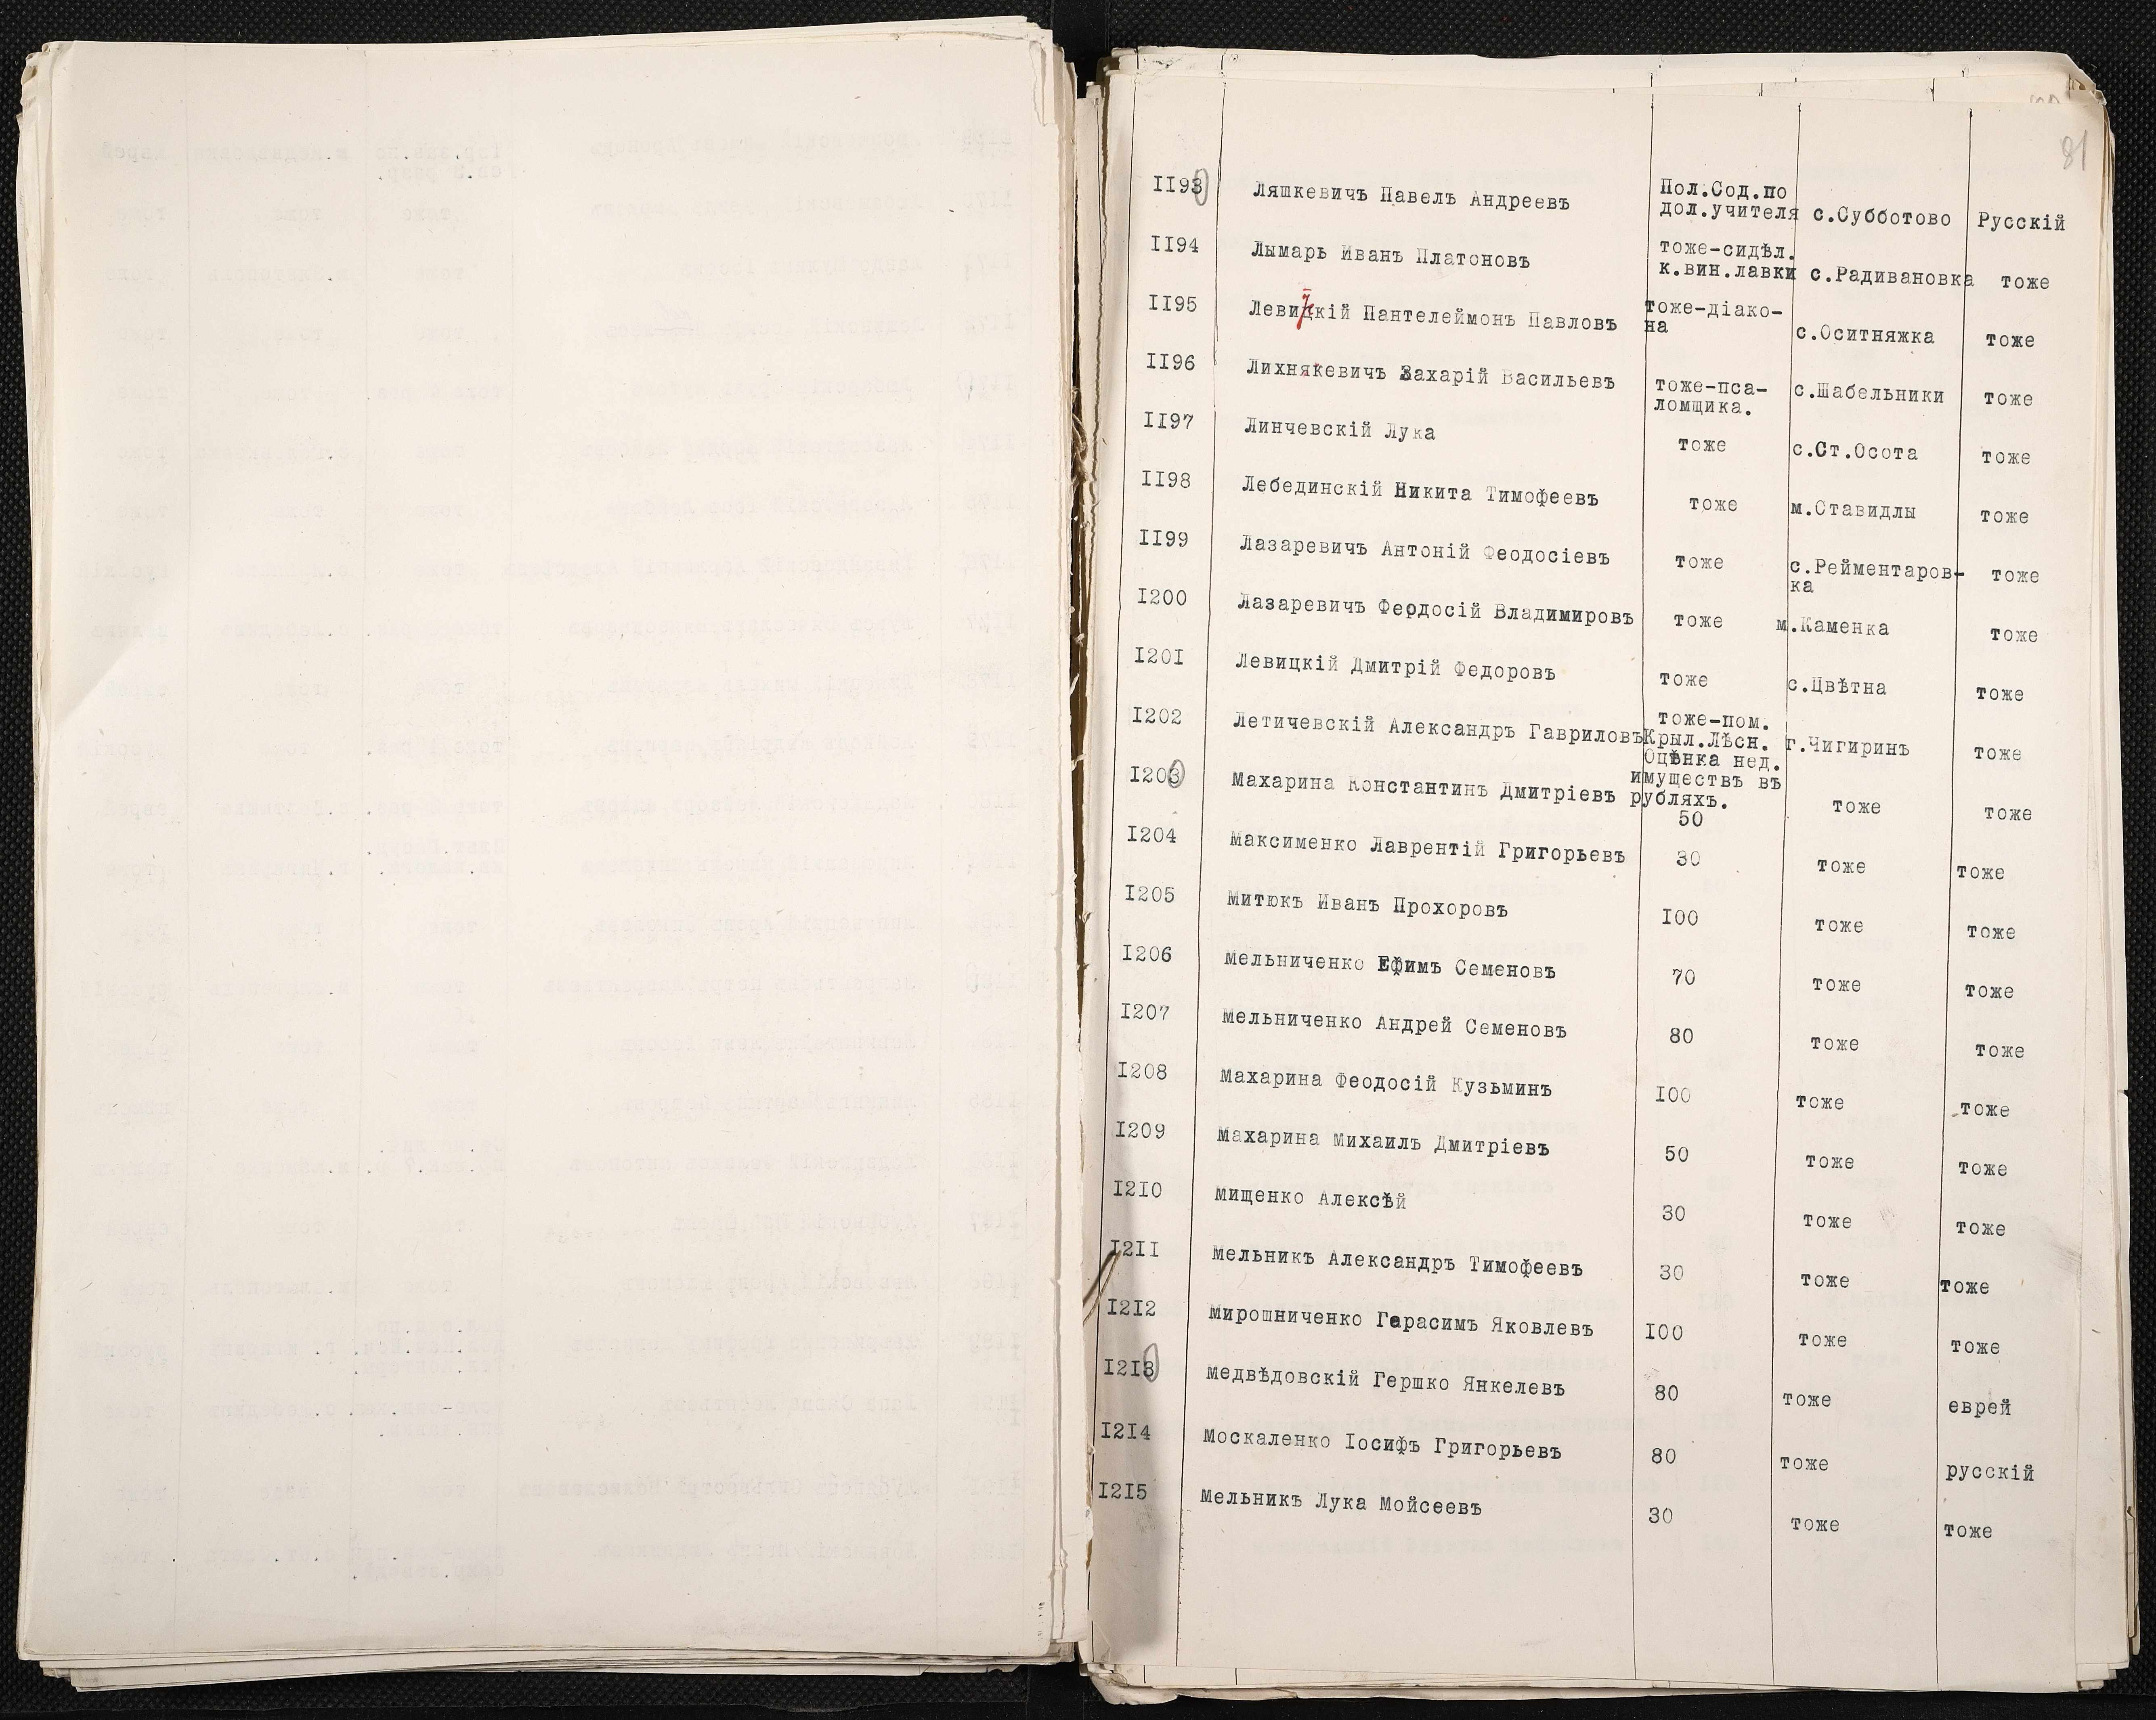 81
1193 Ляшкевичъ Павелъ Андреевъ Пол.Сод.по
дол.учителя с.Субботово Русскій
1194 Лымарь Иванъ Платоновъ тоже-сидѣл.
к.вин.лавки с.Радивановка тоже
1195 Левицкій Пантелеймонъ Павловъ тоже-діако-
на с.Оситняжка тоже
1196 Лихнякевичъ Захарій Васильевъ тоже-пса-
ломщика. с.Шабельники тоже
1197 Линчевскій Лука тоже с.Ст.Осота тоже
1198 Лебединскій Никита Тимофеевъ тоже м.Ставидлы тоже
1199 Лазаревичъ Антоній Феодосіевъ тоже с.Рейментаров-
ка тоже
1200 Лазаревичъ Феодосій Владимировъ тоже м.Каменка тоже
1201 Левицкій Дмитрій Федоровъ тоже с.Цвѣтна тоже
1202 Летичевскій Александръ Гавриловъ тоже-пом.
Крыл.Лѣсн. г.Чигиринъ тоже
Оцѣнка нед.
имуществъ въ
рубляхъ.
1203 Махарина Константинъ Дмитріевъ 50 тоже тоже
1204 Максименко Лаврентій Григорьевъ 30 тоже тоже
1205 Митюкъ Иванъ Прохоровъ 100 тоже тоже
1206 Мельниченко Ефимъ Семеновъ 70 тоже тоже
1207 Мельниченко Андрей Семеновъ 80 тоже тоже
1208 Махарина Феодосій Кузьминъ 100 тоже тоже
1209 Махарина Михаилъ Дмитріевъ 50 тоже тоже
1210 Мищенко Алексѣй 30 тоже тоже
1211 Мельникъ Александръ Тимофеевъ 30 тоже тоже
1212 Мирошниченко Герасимъ Яковлевъ 100 тоже тоже
1213 Медвѣдовскій Гершко Янкелевъ 80 тоже еврей
1214 Москаленко Іосифъ Григорьевъ 80 тоже русскій
1215 Мельникъ Лука Мойсеевъ 30 тоже тоже